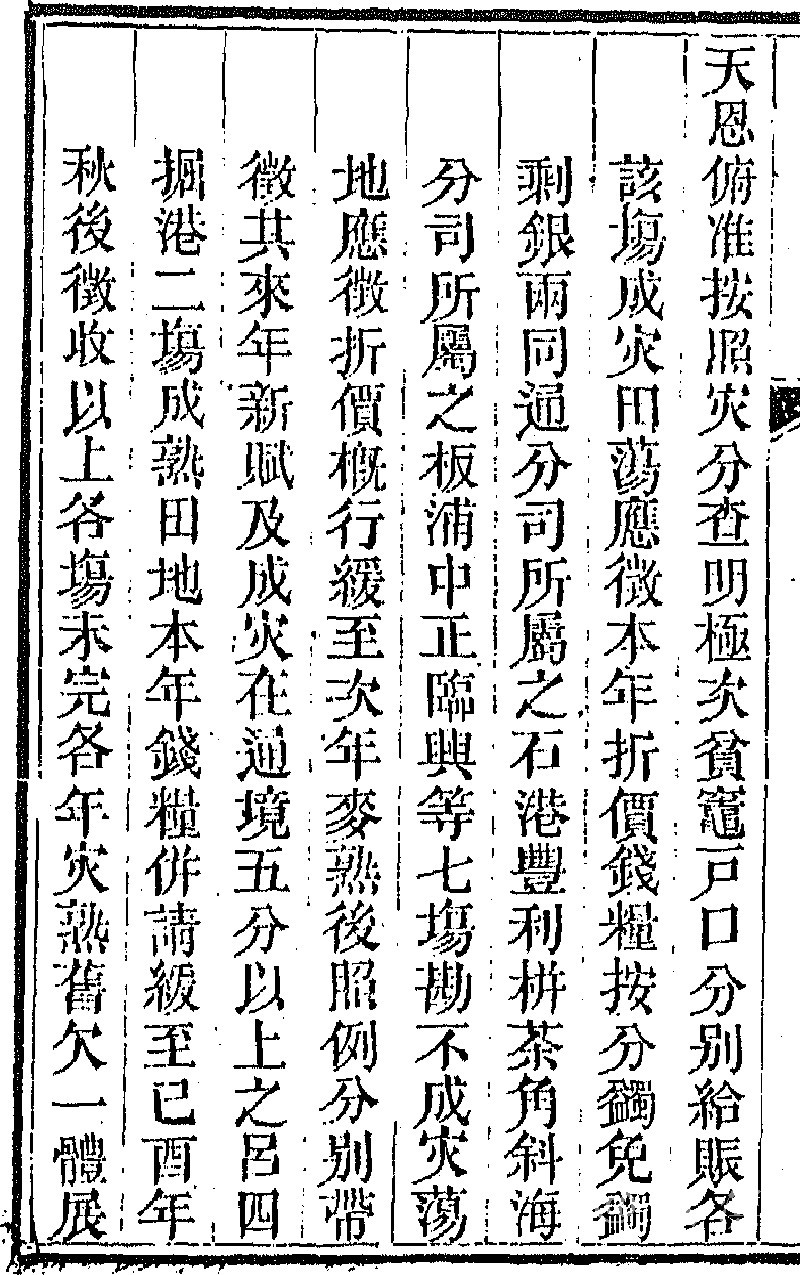 天恩俯准按照灾分查明極次貧竈戸口分别給賑各
該塲成灾田蕩應徵本年折價錢糧按分蠲免蠲
剩銀兩同通分司所屬之石港豐利栟茶角斜海
分司所屬之板浦中正臨興等七塲勘不成灾蕩
地應徵折價槪行緩至次年麥熟後照例分别帶
徵其來年新賦及成灾在通境五分以上之呂四
掘港二塲成熟田地本年錢糧併請緩至已酉年
秋後徵收以上各塲未完各年灾熟舊欠一體展